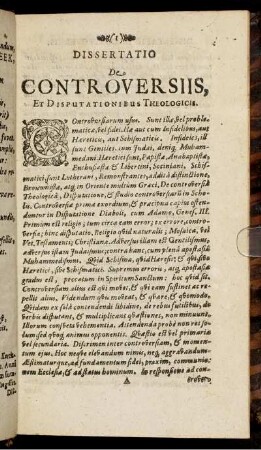 DISSERTATIO
De
CONTROVERSIIS,
ET DISPUTATIONIBUS THEOLOGICIS.
COntroversiarum usus. Sunt illæ vel proble-
maticæ, vel fidei. Illæ aut cum Infidelibus, aut
Hæreticis, aut Schismaticis. Infideles, ill
sunt Gentiles. cum Judæi, deniq; Muham-
medani Hæretici sunt, Papistæ, Anabaptistæ,
Enthusiastæ & Libertini, Sociniani, Schis-
matici, sunt Lutherani, Remonstrantes, addicti distinctione,
Brownistæ, atq; in Oriente multum Græci, De controversiâ
Theologicâ, Disputatione, & studio controversiarii in Scho-
lis. Controversiæ prima exordium, & præcipua capita ostendun-
tur in Disputatione Diaboli, cum Adamo, Genes. III.
Primum est religio; tum circa eam error; ex errore, contro-
versia; hinc disputatio, Religio est vel naturalis; Mosaica, vel
Vet. Testamenti; Christiana. Adversus illam est Gentilismus,
adversus istam Judaismus; contra hanc, cum primis apostasia
Muhammedismi. Quid Schisma, quid Hæresis; & quibus
Hæretici, sive Schismatici. Supremum erroris, atq; apostasiæ
gradus est, peccatum in Spiritum Sanctum. hoc quid sit.
Controversiarum alius est qui movet, & qui eam sustinet ac
repellit alius. Videndum quis moveat, & quare, & quomodo.
Quidam ex solâ contendendi libidine, de rebus futilibus, de
verbis disputant, & multiplicant quæstiones, non minuunt.
Illorum conspectus vehementia. Attendenda probè non res so-
lum sed quoq; animus opponentis. Quæstio est vel primaria
vel secundaria. Discrimen inter controversiam, & momen-
tum ejus. Hoc neque elevandum nimis, neq; aggrabandum.
Æstimaturque, ad fundamentum fidei, praxim, communio-
nem Ecclesiæ, & ad statum hominum. In responsione ad con-
A